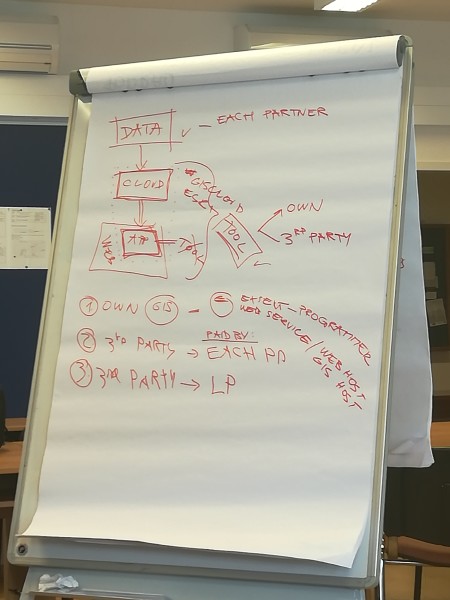 DATA ✓ — EACH PARTNER
CLOUD
GISCLOUD
ESRI
WEB
APP
TOOL
TOOL ✓
OWN
3RD PARTY
① OWN GIS –
EXPERT – PROGRAMMER
WEB SERVICE / WEB HOST
GIS HOST
PAID BY:
② 3RD PARTY → EACH PP
③ 3RD PARTY → LP